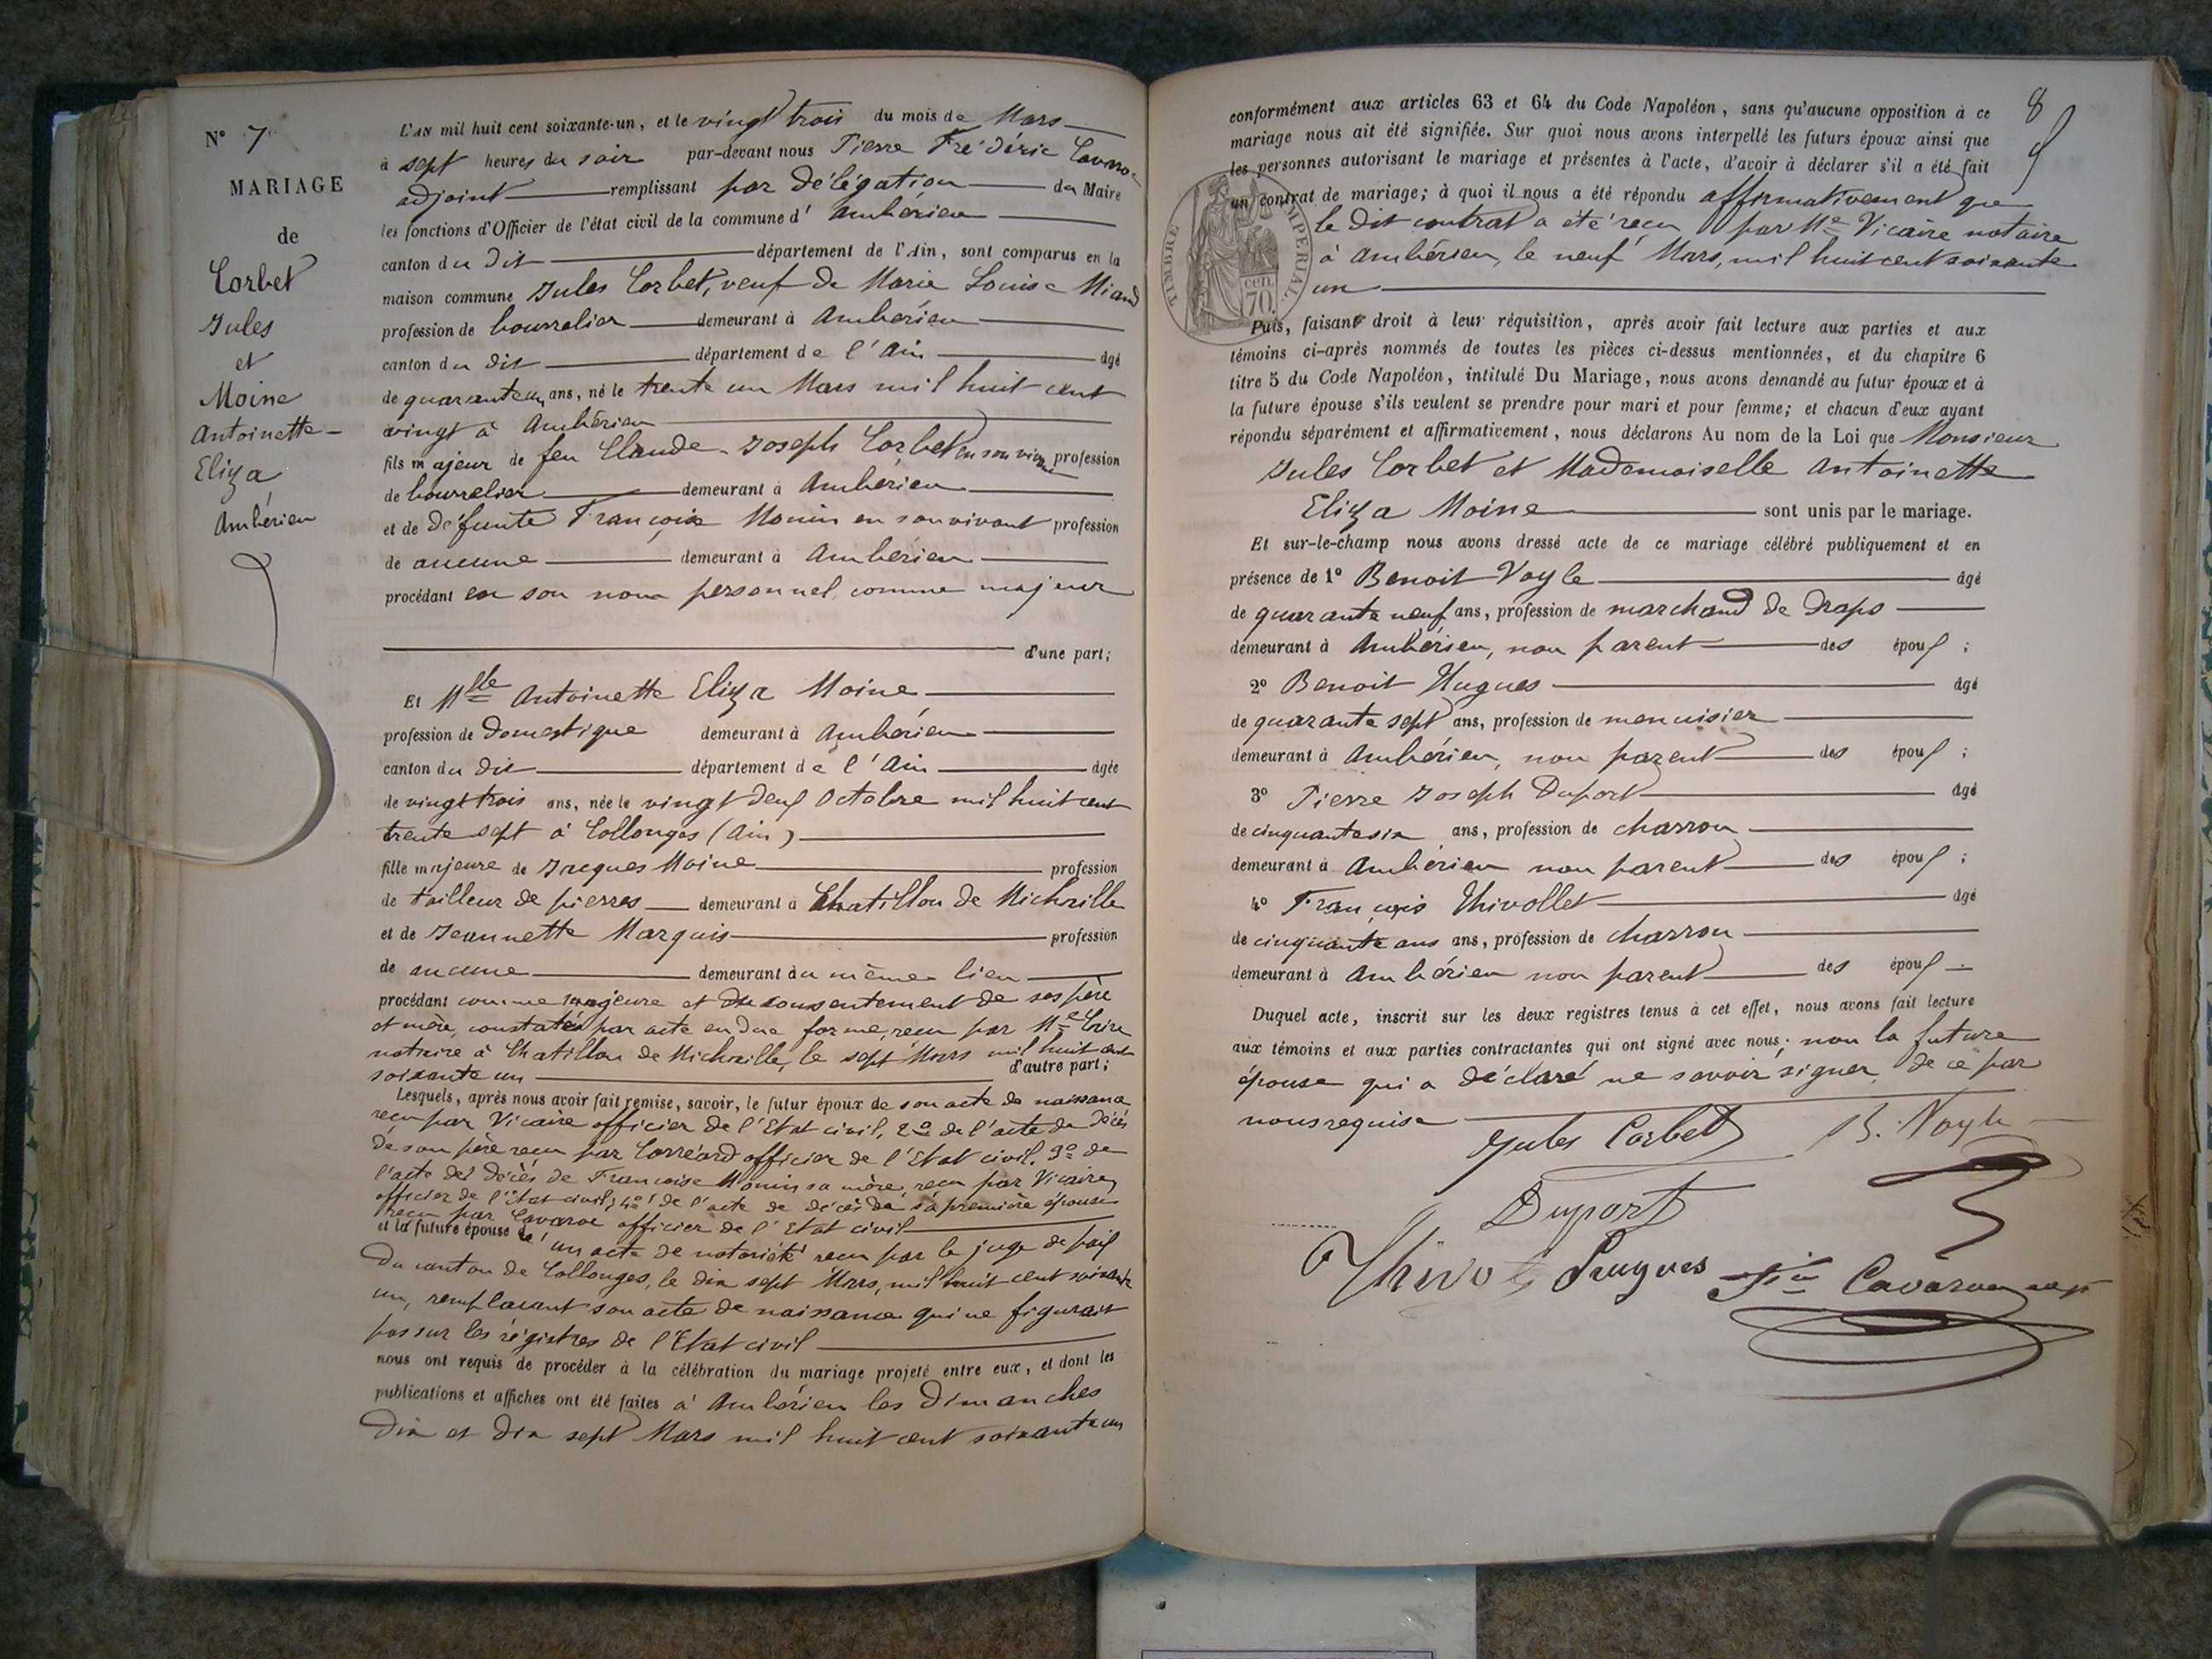 N° 7
MARIAGE
de
Corbet
Jules
et
Moine
Antoinette -
Eliza
Ambérieu
L'AN mil huit cent soixante-un, et le vingt trois du mois de Mars
à sept heures du soir par-devant nous Pierre Frédéric Cavaroc
adjoint remplissant par délégation du Maire
les fonctions d'Officier de l'état civil de la commune d'Ambérieu
canton du dit département de l'Ain, sont comparus en la
maison commune Jules Corbet, veuf de Marie Louise
profession de bourrelier demeurant à Ambérieu
canton du dit département de l'Ain âgé
de quarante un ans, né le trente un Mars mil huit cent
vingt à Ambérieu
fils majeur de feu Claude-Joseph Corbet en son vivant profession
de bourrelier demeurant à Ambérieu
et de défunte Françoise Monin en son vivant profession
de aucune demeurant à Ambérieu
procédant en son nom personnel comme majeur
d'une part;
Et Mlle Antoinette Eliza Moine
profession de domestique demeurant à Ambérieu
canton du dit département de l'Ain âgée
de vingt trois ans, née le vingt deux Octobre mil huit cent
trente sept à Collonges (Ain)
fille majeure de Jacques Moine profession
de tailleur de pierres demeurant à Chatillon de Michaille
et de Jeannette Marquis profession
de aucune demeurant au même lieu
procédant comme majeure et du consentement de ses père
et mère, constatés par acte en due forme, reçu par Me
notaire à Chatillon de Michaille, le sept Mars mil huit cent
soixante un d'autre part;
Lesquels, après nous avoir fait remise, savoir, le futur époux de son acte de naissance
reçu par Vicaire officier de l'Etat civil, 2° de l'acte de décès
de son père reçu par Corréard officier de l'Etat civil. 3° de
l'acte de décès de Françoise Monin sa mère, reçu par Vicaire
officier de l'Etat civil; 4° de l'acte de décès de sa première épouse
reçu par Cavaroc officier de l'Etat civil
et la future épouse d'un acte de notoriété reçu par le juge de paix
du canton de Collonges, le dix sept Mars, mil huit cent soixante
un, remplaçant son acte de naissance qui ne figurait
pas sur les régistres de l'Etat civil
nous ont requis de procéder à la célébration du mariage projeté entre eux, et dont les
publications et affiches ont été faites à Ambérieu les Dimanches
dix et dix sept Mars mil huit cent soixante un
8
conformément aux articles 63 et 64 du Code Napoléon, sans qu'aucune opposition à ce
mariage nous ait été signifiée. Sur quoi nous avons interpellé les futurs époux ainsi que
les personnes autorisant le mariage et présentes à l'acte, d'avoir à déclarer s'il a été fait
un contrat de mariage; à quoi il nous a été répondu affirmativement que
le dit contrat a été reçu par Me Vicaire notaire
à Ambérieu, le neuf Mars, mil huit cent soixante
un
TIMBRE IMPERIAL
70 cen
Puis, faisant droit à leur réquisition, après avoir fait lecture aux parties et aux
témoins ci-après nommés de toutes les pièces ci-dessus mentionnées, et du chapitre 6
titre 5 du Code Napoléon, intitulé Du Mariage, nous avons demandé au futur époux et à
la future épouse s'ils veulent se prendre pour mari et pour femme; et chacun d'eux ayant
répondu séparément et affirmativement, nous déclarons Au nom de la Loi que Monsieur
Jules Corbet et Mademoiselle Antoinette
Eliza Moine sont unis par le mariage.
Et sur-le-champ nous avons dressé acte de ce mariage célébré publiquement et en
présence de 1° Benoit Vayle âgé
de quarante neuf ans, profession de marchand de draps
demeurant à Ambérieu, non parent des époux;
2° Benoit Hugues âgé
de quarante sept ans, profession de menuisier
demeurant à Ambérieu, non parent des époux;
3° Pierre Joseph Duport âgé
de cinquante six ans, profession de charron
demeurant à Ambérieu non parent des époux;
4° François Thivollet âgé
de cinquante ans ans, profession de charron
demeurant à Ambérieu non parent des époux
Duquel acte, inscrit sur les deux registres tenus à cet effet, nous avons fait lecture
aux témoins et aux parties contractantes qui ont signé avec nous; non la future
épouse qui a déclaré ne savoir signer de ce par
nous requise
Jules Corbet B. Vayle
Duport
Thivolet Hugues Fic Cavaroc